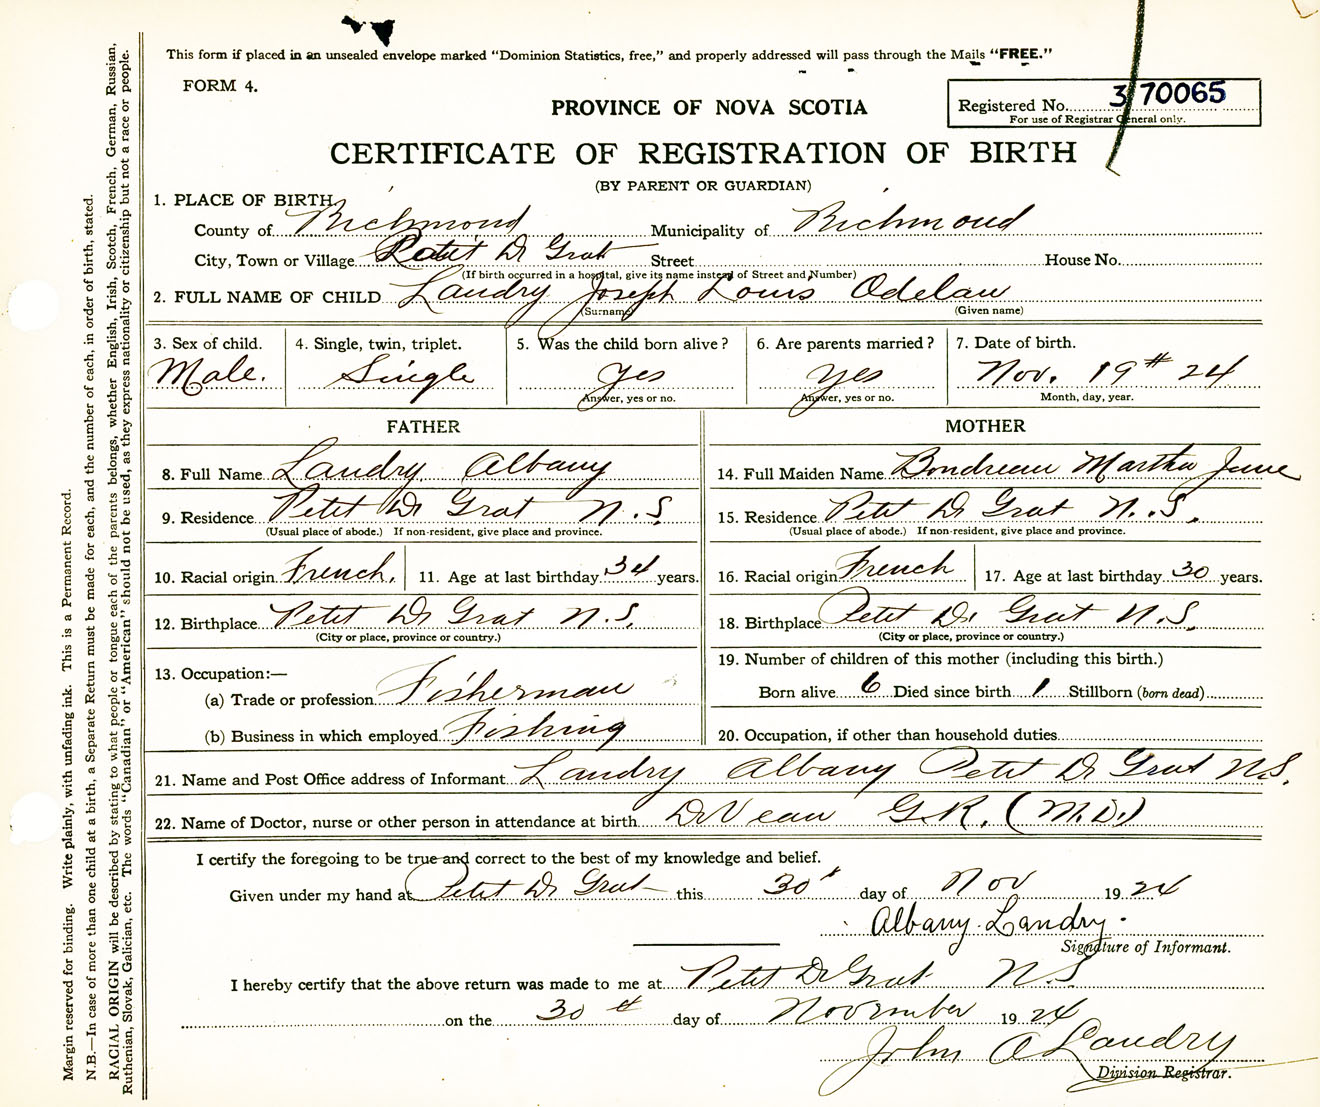 This form if placed in an unsealed envelope marked "Dominion Statistics, free," and properly addressed will pass through the Mails "FREE."
FORM 4.
Registered No. 370065
For use of Registrar General only.
PROVINCE OF NOVA SCOTIA
CERTIFICATE OF REGISTRATION OF BIRTH
(BY PARENT OR GUARDIAN)
1. PLACE OF BIRTH
County of Richmond Municipality of Richmond
City, Town or Village Petit De Grat Street House No.
(If birth occurred in a hospital, give its name instead of Street and Number)
2. FULL NAME OF CHILD Landry Joseph Louis Odelau
(Surname) (Given name)
3. Sex of child. 4. Single, twin, triplet. 5. Was the child born alive? 6. Are parents married? 7. Date of birth.
Male. Single yes yes Nov. 19th 24
Answer, yes or no. Answer, yes or no. Month, day, year.
FATHER
8. Full Name Landry Albany
9. Residence Petit De Grat N.S.
(Usual place of abode.) If non-resident, give place and province.
10. Racial origin French. 11. Age at last birthday 34 years.
12. Birthplace Petit De Grat N.S.
(City or place, province or country.)
13. Occupation:—
(a) Trade or profession Fisherman
(b) Business in which employed Fishing
MOTHER
14. Full Maiden Name Boudreau Martha Jane
15. Residence Petit De Grat N.S.
(Usual place of abode.) If non-resident, give place and province.
16. Racial origin French 17. Age at last birthday 30 years.
18. Birthplace Petit De Grat N.S.
(City or place, province or country.)
19. Number of children of this mother (including this birth.)
Born alive 6 Died since birth 1 Stillborn (born dead)
20. Occupation, if other than household duties
21. Name and Post Office address of Informant Landry Albany Petit De Grat N.S.
22. Name of Doctor, nurse or other person in attendance at birth DeVeau G.R. (M.D.)
I certify the foregoing to be true and correct to the best of my knowledge and belief.
Given under my hand at Petit De Grat this 30th day of Nov 1924
Albany Landry.
Signature of Informant.
I hereby certify that the above return was made to me at Petit De Grat N.S.
on the 30th day of November 1924
John A Landry
Division Registrar.
Margin reserved for binding. Write plainly, with unfading ink. This is a Permanent Record.
N.B.—In case of more than one child at a birth, a Separate Return must be made for each, and the number of each, in order of birth, stated.
RACIAL ORIGIN will be described by stating to what people or tongue each of the parents belongs, whether English, Irish, Scotch, French, German, Russian,
Ruthenian, Slovak, Galician, etc. The words "Canadian" or "American" should not be used, as they express nationality or citizenship but not a race or people.